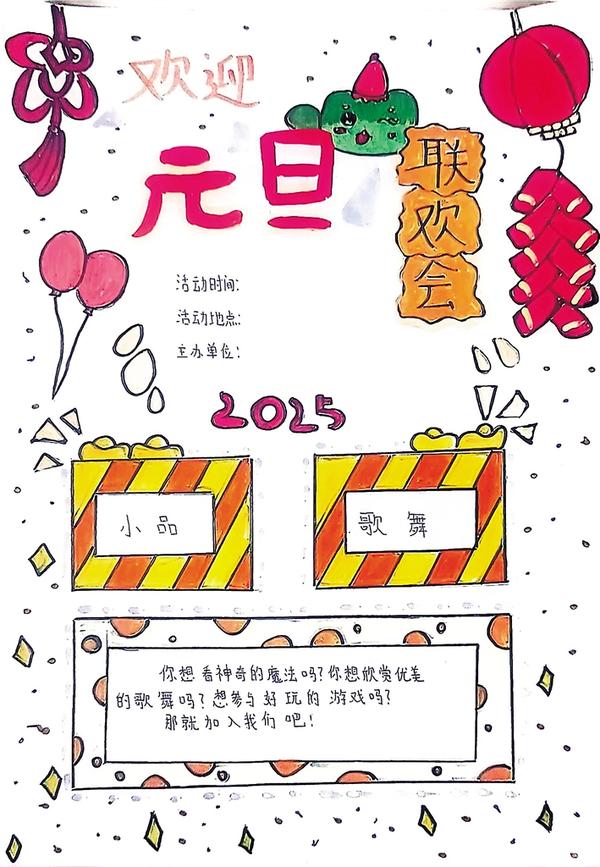 欢迎
元旦
联欢会
活动时间:
活动地点:
主办单位:
2025
小品
歌舞
你想看神奇的魔法吗?你想欣赏优美
的歌舞吗?想参与好玩的游戏吗?
那就加入我们吧!